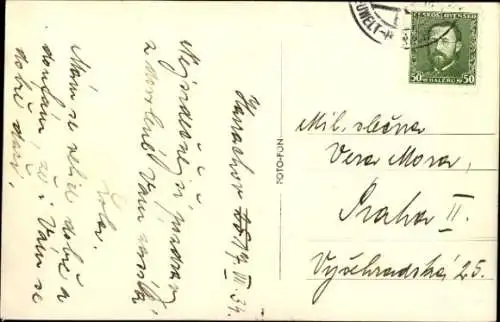 Harrachov 17/III.34.
Nejsrdečnější pozdrav
z dovolené Vám zasílá
Lola.
Mám se velice dobře a
doufám, že i Vám se
dobře daří.
UWELT-H
ČESKOSLOVENSKO
50 HALÉŘŮ 50
FOTO-FON
Mil. slečna
Vera Mora,
Praha II.
Vyšehradská 25.